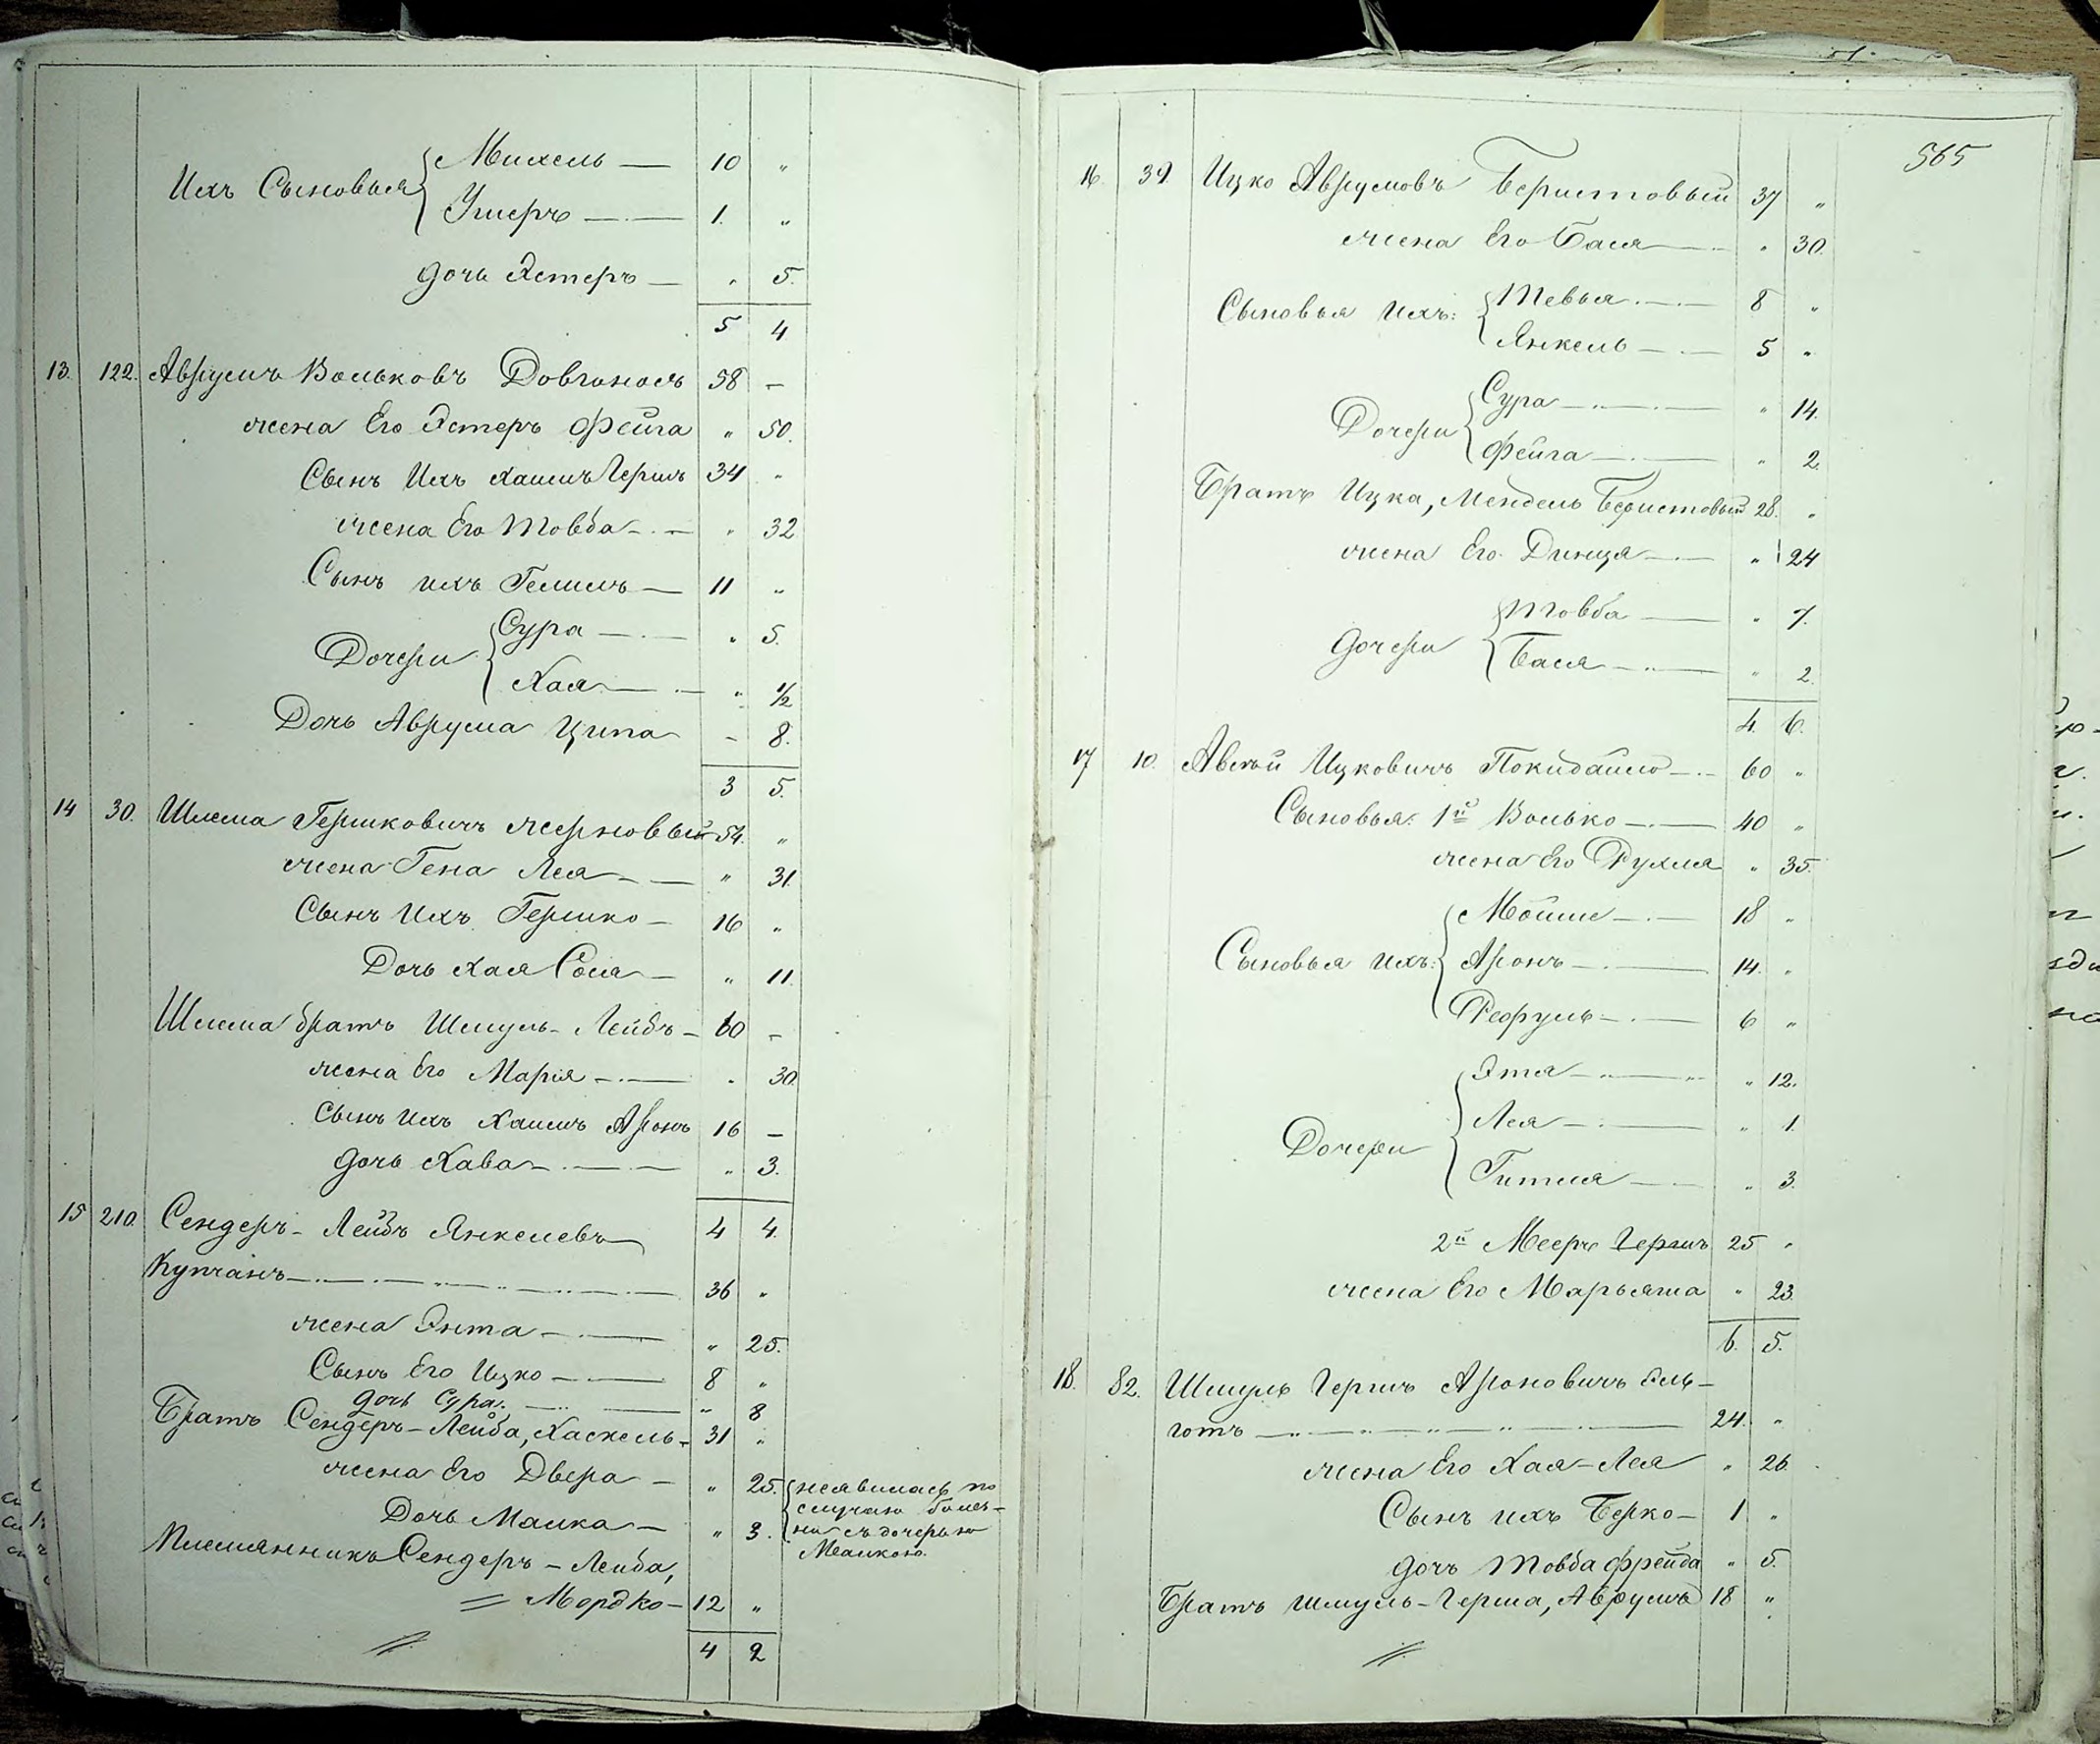 Ихъ Сыновья Михель — 10 "
Ушеръ — 1. "
дочь Эстеръ — " 5.
5 4
13. 122. Аврумъ Вольковъ Довгоносъ 58 —
жена Его Эстеръ Фейга " 50.
Сынъ Ихъ Хаимъ Гершъ 34 "
жена Его Товба — " 32
Сынъ ихъ — 11 "
Дочери Сура — " 5.
Хая — " 1/2
Дочь Аврума Ципа — 8.
3 5.
14 30. Шлема Гершковичъ Жерновый 54. "
жена Гена Лея — " 31.
Сынъ Ихъ Гершко — 16 "
Дочь Хая Сося — " 11
Шлема братъ Шмуль-Лейбъ — 60 —
жена Его Марія — " 30.
Сынъ ихъ Хаимъ Аронъ 16 —
дочь Хава — " 3.
4 4.
15 210. Сендеръ-Лейбъ Янкелевъ
Купчанъ — 36 "
жена Энта — " 25.
Сынъ Его Ицко — 8 "
дочь Сура. — " 8
Братъ Сендеръ-Лейба, Хаскель — 31 "
жена Его Двера — " 25. неявилась по
случаю болѣз-
Дочь Малка — " 3. ни съ дочерью
Малкою.
Племянникъ Сендеръ-Лейба,
= Мордко — 12 "
4 2
565
16. 39. Ицко Аврумовъ Берштовый 37 "
жена Его Бася — " 30.
Сыновья Ихъ: Тевья — 8 "
Янкель — 5 "
Дочери Сура — " 14.
Фейга — " 2.
Братъ Ицка, Мендель Берштовый 28. "
жена Его Динця — " 24
дочери Товба — " 7.
Бася — " 2.
4. 6.
17 10. Авсѣй Ицковичъ Покидайло — 60 "
Сыновья: 1й Волько — 40 "
жена Его Рухля " 35.
Сыновья ихъ: Мойше — 18 "
Аронъ — 14. "
— 6 "
Дочери Этя — " 12.
Лея — " 1.
Гитля — " 3.
2й Мееръ Гершъ 25 "
жена Его Марьяша " 23.
6. 5.
18. 82. Шмуль Гершъ Ароновичъ Ель-
готъ — 24. "
жена Его Хая-Лея " 26.
Сынъ ихъ Берко — 1 "
дочь Товба Фрейда " 5.
Братъ Шмуль-Герша, Аврумъ 18 "